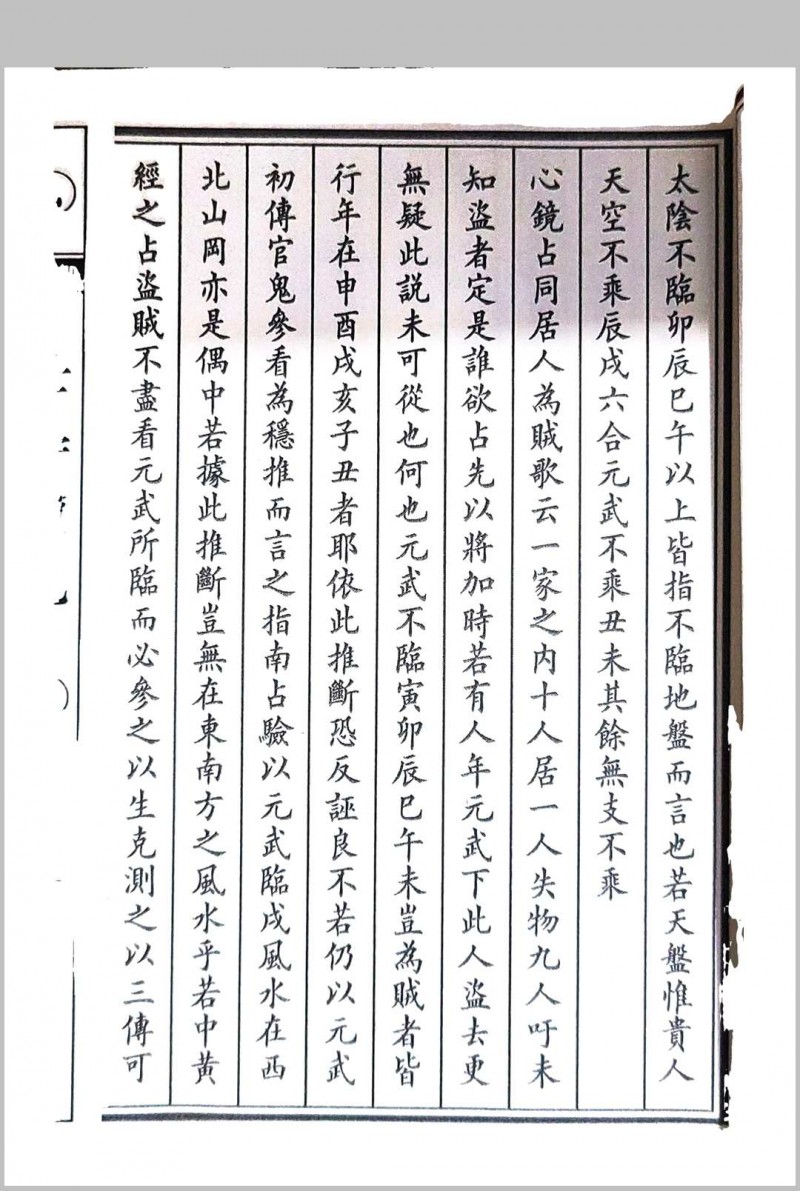 太陰不臨卯辰巳午以上皆指不臨地盤而言也若天盤惟貴人
天空不乘辰戌六合元武不乘丑未其餘無支不乘
心鏡占同居人為賊歌云一家之内十人居一人失物九人吁未
知盜者定是誰欲占先以將加時若有人年元武下此人盜去更
無疑此說未可從也何也元武不臨寅卯辰巳午未豈為賊者皆
行年在申酉戌亥子丑者耶依此推斷恐反誣良不若仍以元武
初傳官鬼參看為穩推而言之指南占驗以元武臨戌風水在西
北山岡亦是偶中若據此推斷豈無在東南方之風水乎若中黃
經之占盜賊不盡看元武所臨而必參之以生克測之以三傳可